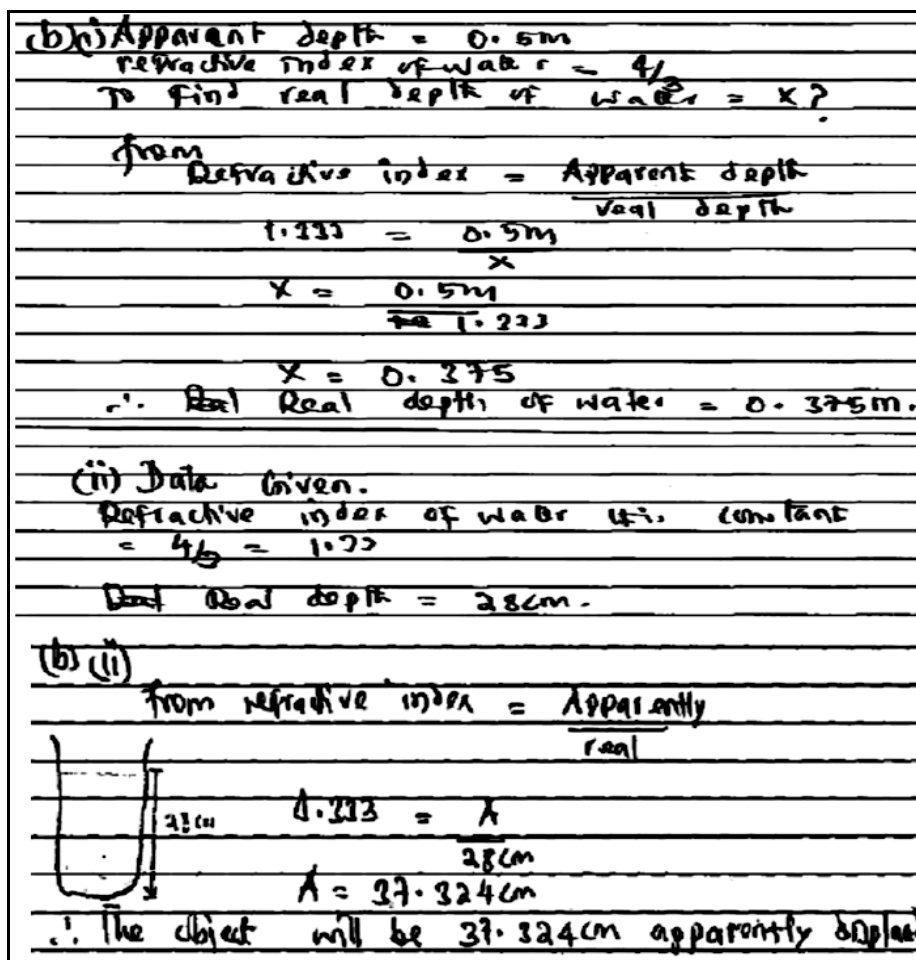 (b)(i) Apparent depth = 0.5m
refractive index of water = 4/3
To find real depth of water = x?
from
Refractive index = Apparent depth
real depth
1.333 = 0.5m
x
x = 0.5m
1.333
x = 0.375
∴ Real Real depth of water = 0.375m.
(ii) Data Given.
Refractive index of water is constant
= 4/3 = 1.33
Real depth = 28cm.
(b) (ii)
from refractive index = Apparently
real
28cm
1.333 = A
28cm
A = 37.324cm
∴ The object will be 37.324cm apparently